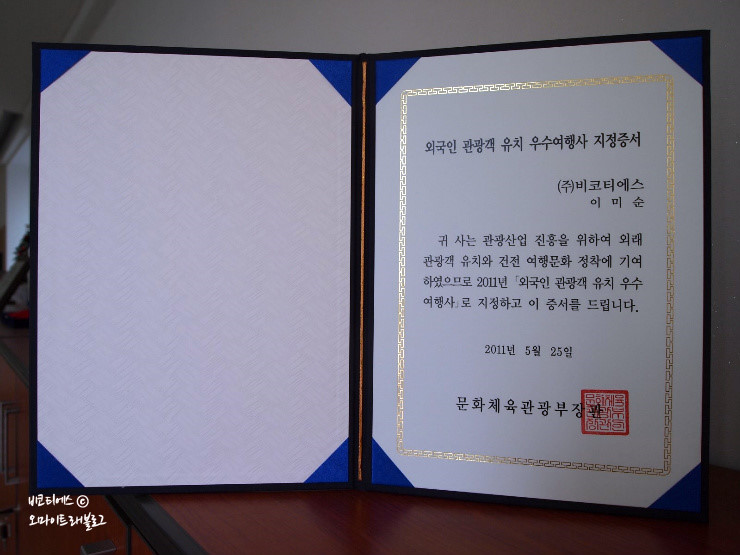 외국인 관광객 유치 우수여행사 지정증서
(주)비코티에스
이 미 순
귀 사는 관광산업 진흥을 위하여 외래
관광객 유치와 건전 여행문화 정착에 기여
하였으므로 2011년 「외국인 관광객 유치 우수
여행사」로 지정하고 이 증서를 드립니다.
2011년 5월 25일
문화체육관광부장관
비코티에스 ©
오마이트래블로그